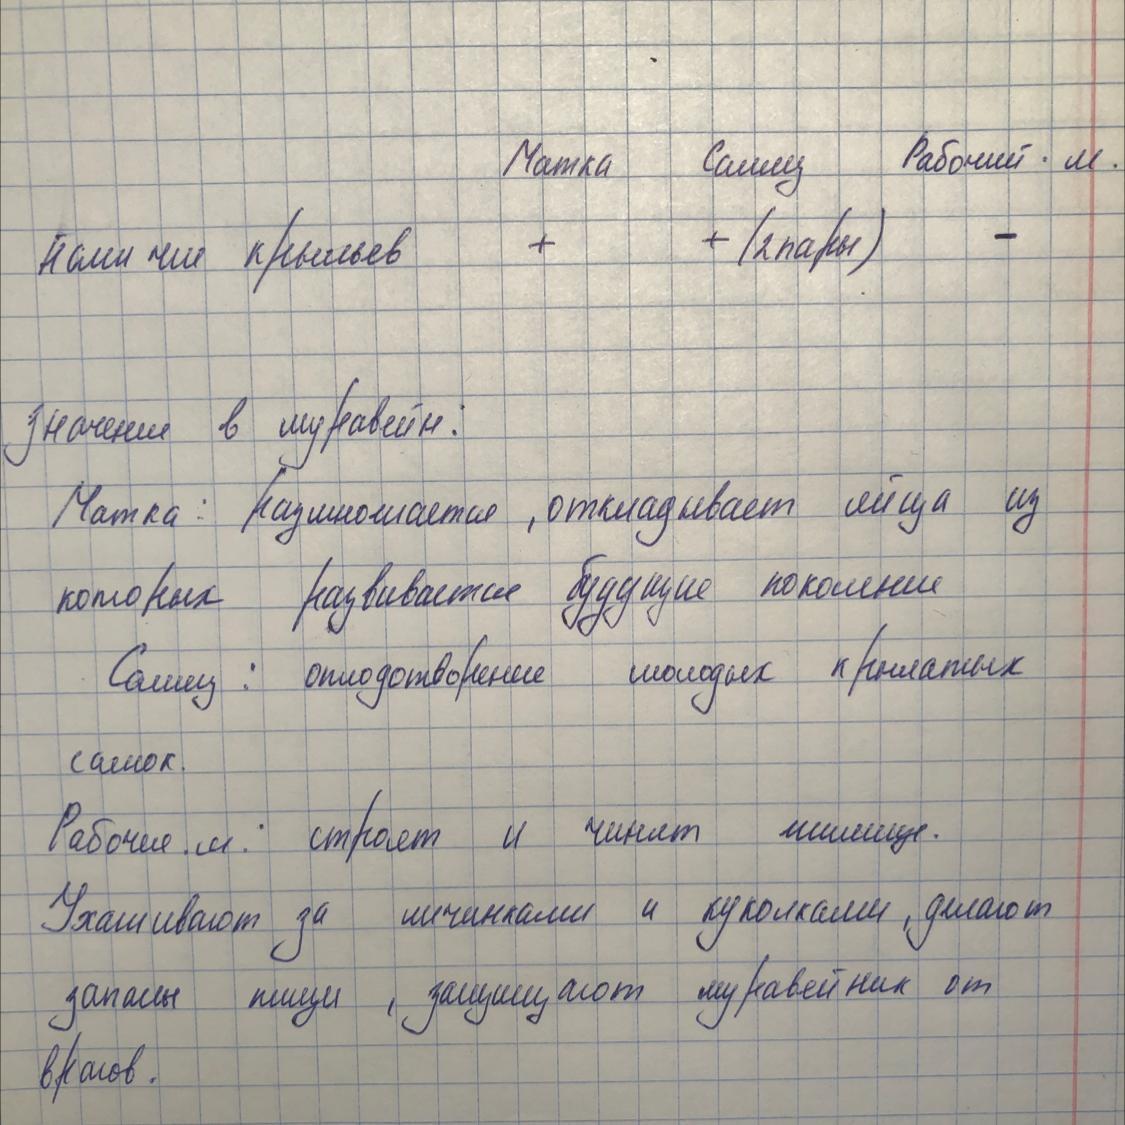 Матка Самец Рабочий. м.
Наличие крыльев + + (2 пары) -
Значение в муравейн:
Матка: размножается, откладывает яйца из
которых развивается будущие поколение
Самец: оплодотворение молодых крылатых
самок.
Рабочие. м: строят и чинят жилище.
Ухаживают за личинками и куколками, делают
запасы пищи, защищают муравейник от
врагов.